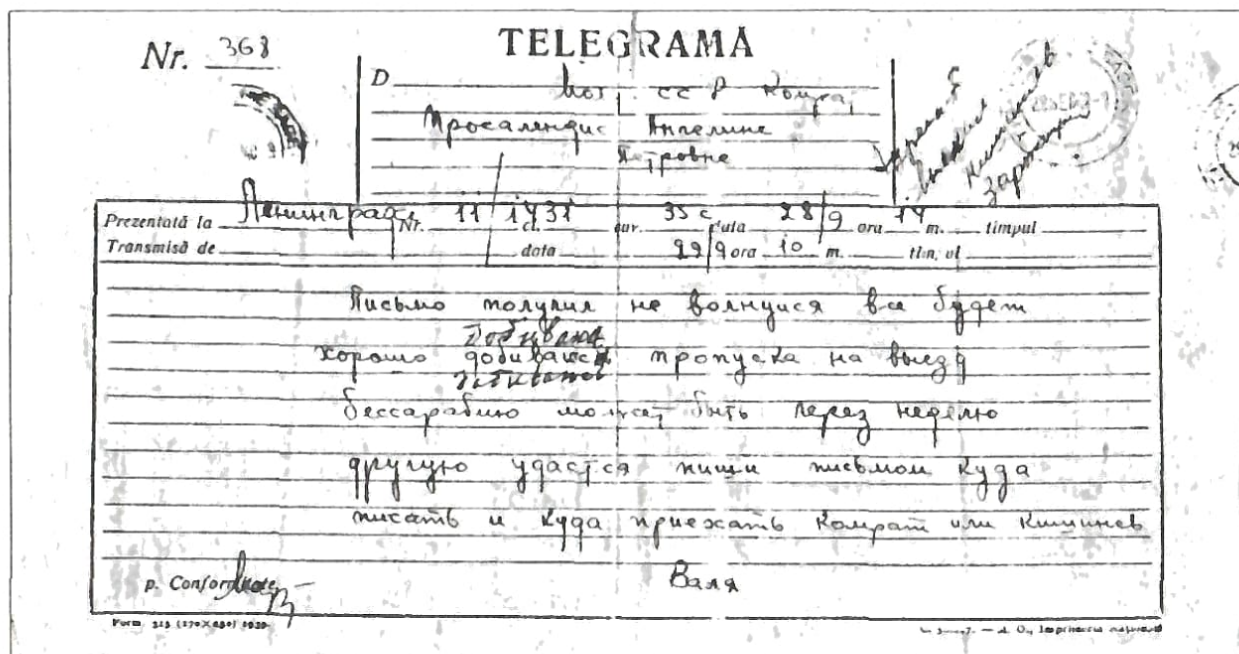 TELEGRAMĂ
Nr. 368
D
СС Р
Просалендис Ангелине
Петровне
Prezentată la Ленинграда Nr. 11/1431 cl. cuv. 33 с data 28/9 ora 14 m. timpul
Transmisă de data 29/9 ora 10 m.
Письмо получил не волнуися все будет
добиваюс
хорошо добиваюсь пропуска на выезд
бессарабию может быть через неделю
другую удастся пиши письмом куда
писать и куда приехать Комрат или Кишинев
Валя
p. Conformitate,
Form 1939